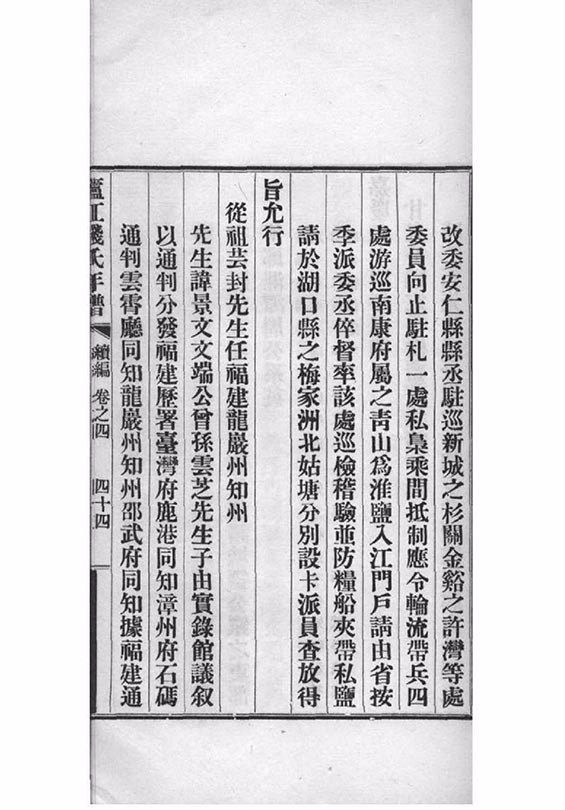 改委安仁縣縣丞駐巡新城之杉關金谿之許灣等處
委員向止駐札一處私梟乘間抵制應令輪流帶兵四
處游巡南康府屬之青山爲淮鹽入江門戶請由省按
季派委丞倅督率該處巡檢稽驗並防糧船夾帶私鹽
請於湖口縣之梅家洲北姑塘分別設卡派員查放得
旨允行
從祖芸封先生任福建龍巖州知州
先生諱景文文端公曾孫雲芝先生子由實錄館議叙
以通判分發福建歷署臺灣府鹿港同知漳州府石碼
通判雲霄廳同知龍巖州知州邵武府同知據福建通
廬江錢氏年譜 續編 卷之四 四十四